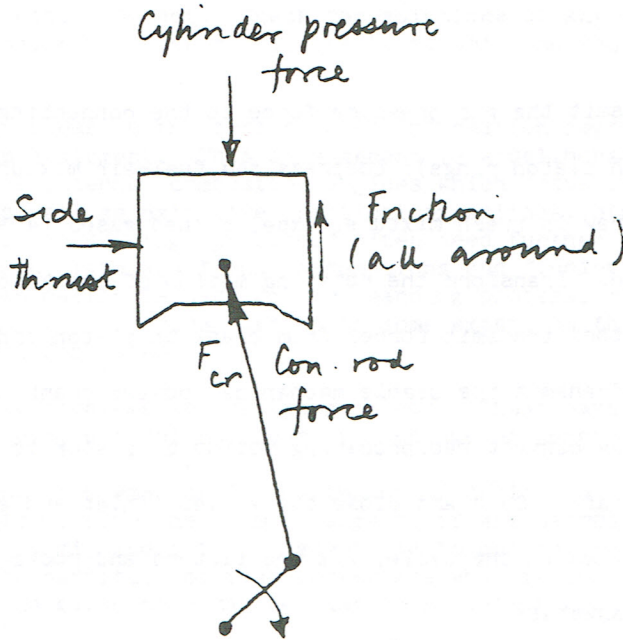 Cylinder pressure
force
Side
thrust
Friction
(all around)
F_cr Con. rod
force